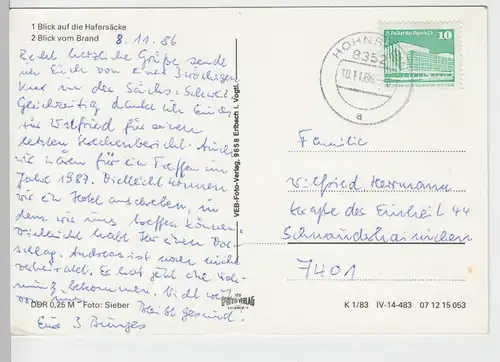 1 Blick auf die Hafersäcke
2 Blick vom Brand
8.11.86
Recht herzliche Grüße sendet
ich Euch von einer 3 wöchigen
Kur in der Sächs. Schweiz.
Gleichzeitig danke ich Euch
für Wilfried für seinen
letzten Hechenbericht. Auch
wir wären für ein Treffen im
Jahr 1987. Vielleicht können
wir ein Hotel anschreiben, in
dem wir uns treffen können,
vielleicht habt Ihr einen Vor-
schlag. Andreas ist noch nicht
verheiratet. Es hat jetzt eine Woh-
nung bekommen. Nicht
von uns. Bleibt gesund!
Eure 3 Bunges
DDR 0,25 M – Foto: Sieber
VEB-Foto-Verlag, 9658 Erlbach i. Vogtl.
BILD UND HEIMAT VERLAG
K 1/83 IV-14-483 07 12 15 053
HOHNS
8352
10.11.86
a
Palast der Republik
10
DDR
Familie
Wilfried Herrmann
Straße der Einheit 44
Schmiedehainichen
7401